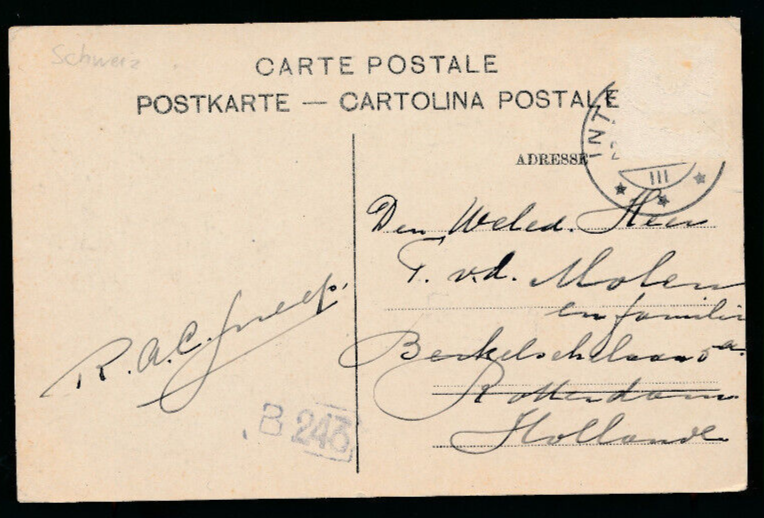 Schweiz
CARTE POSTALE
POSTKARTE — CARTOLINA POSTALE
ADRESSE
INT
III
Den Weled. Heer
T. v.d. Molen
en familie
Berkelschelaan 5a.
Rotterdam
Hollande
R. A. C.
B 243